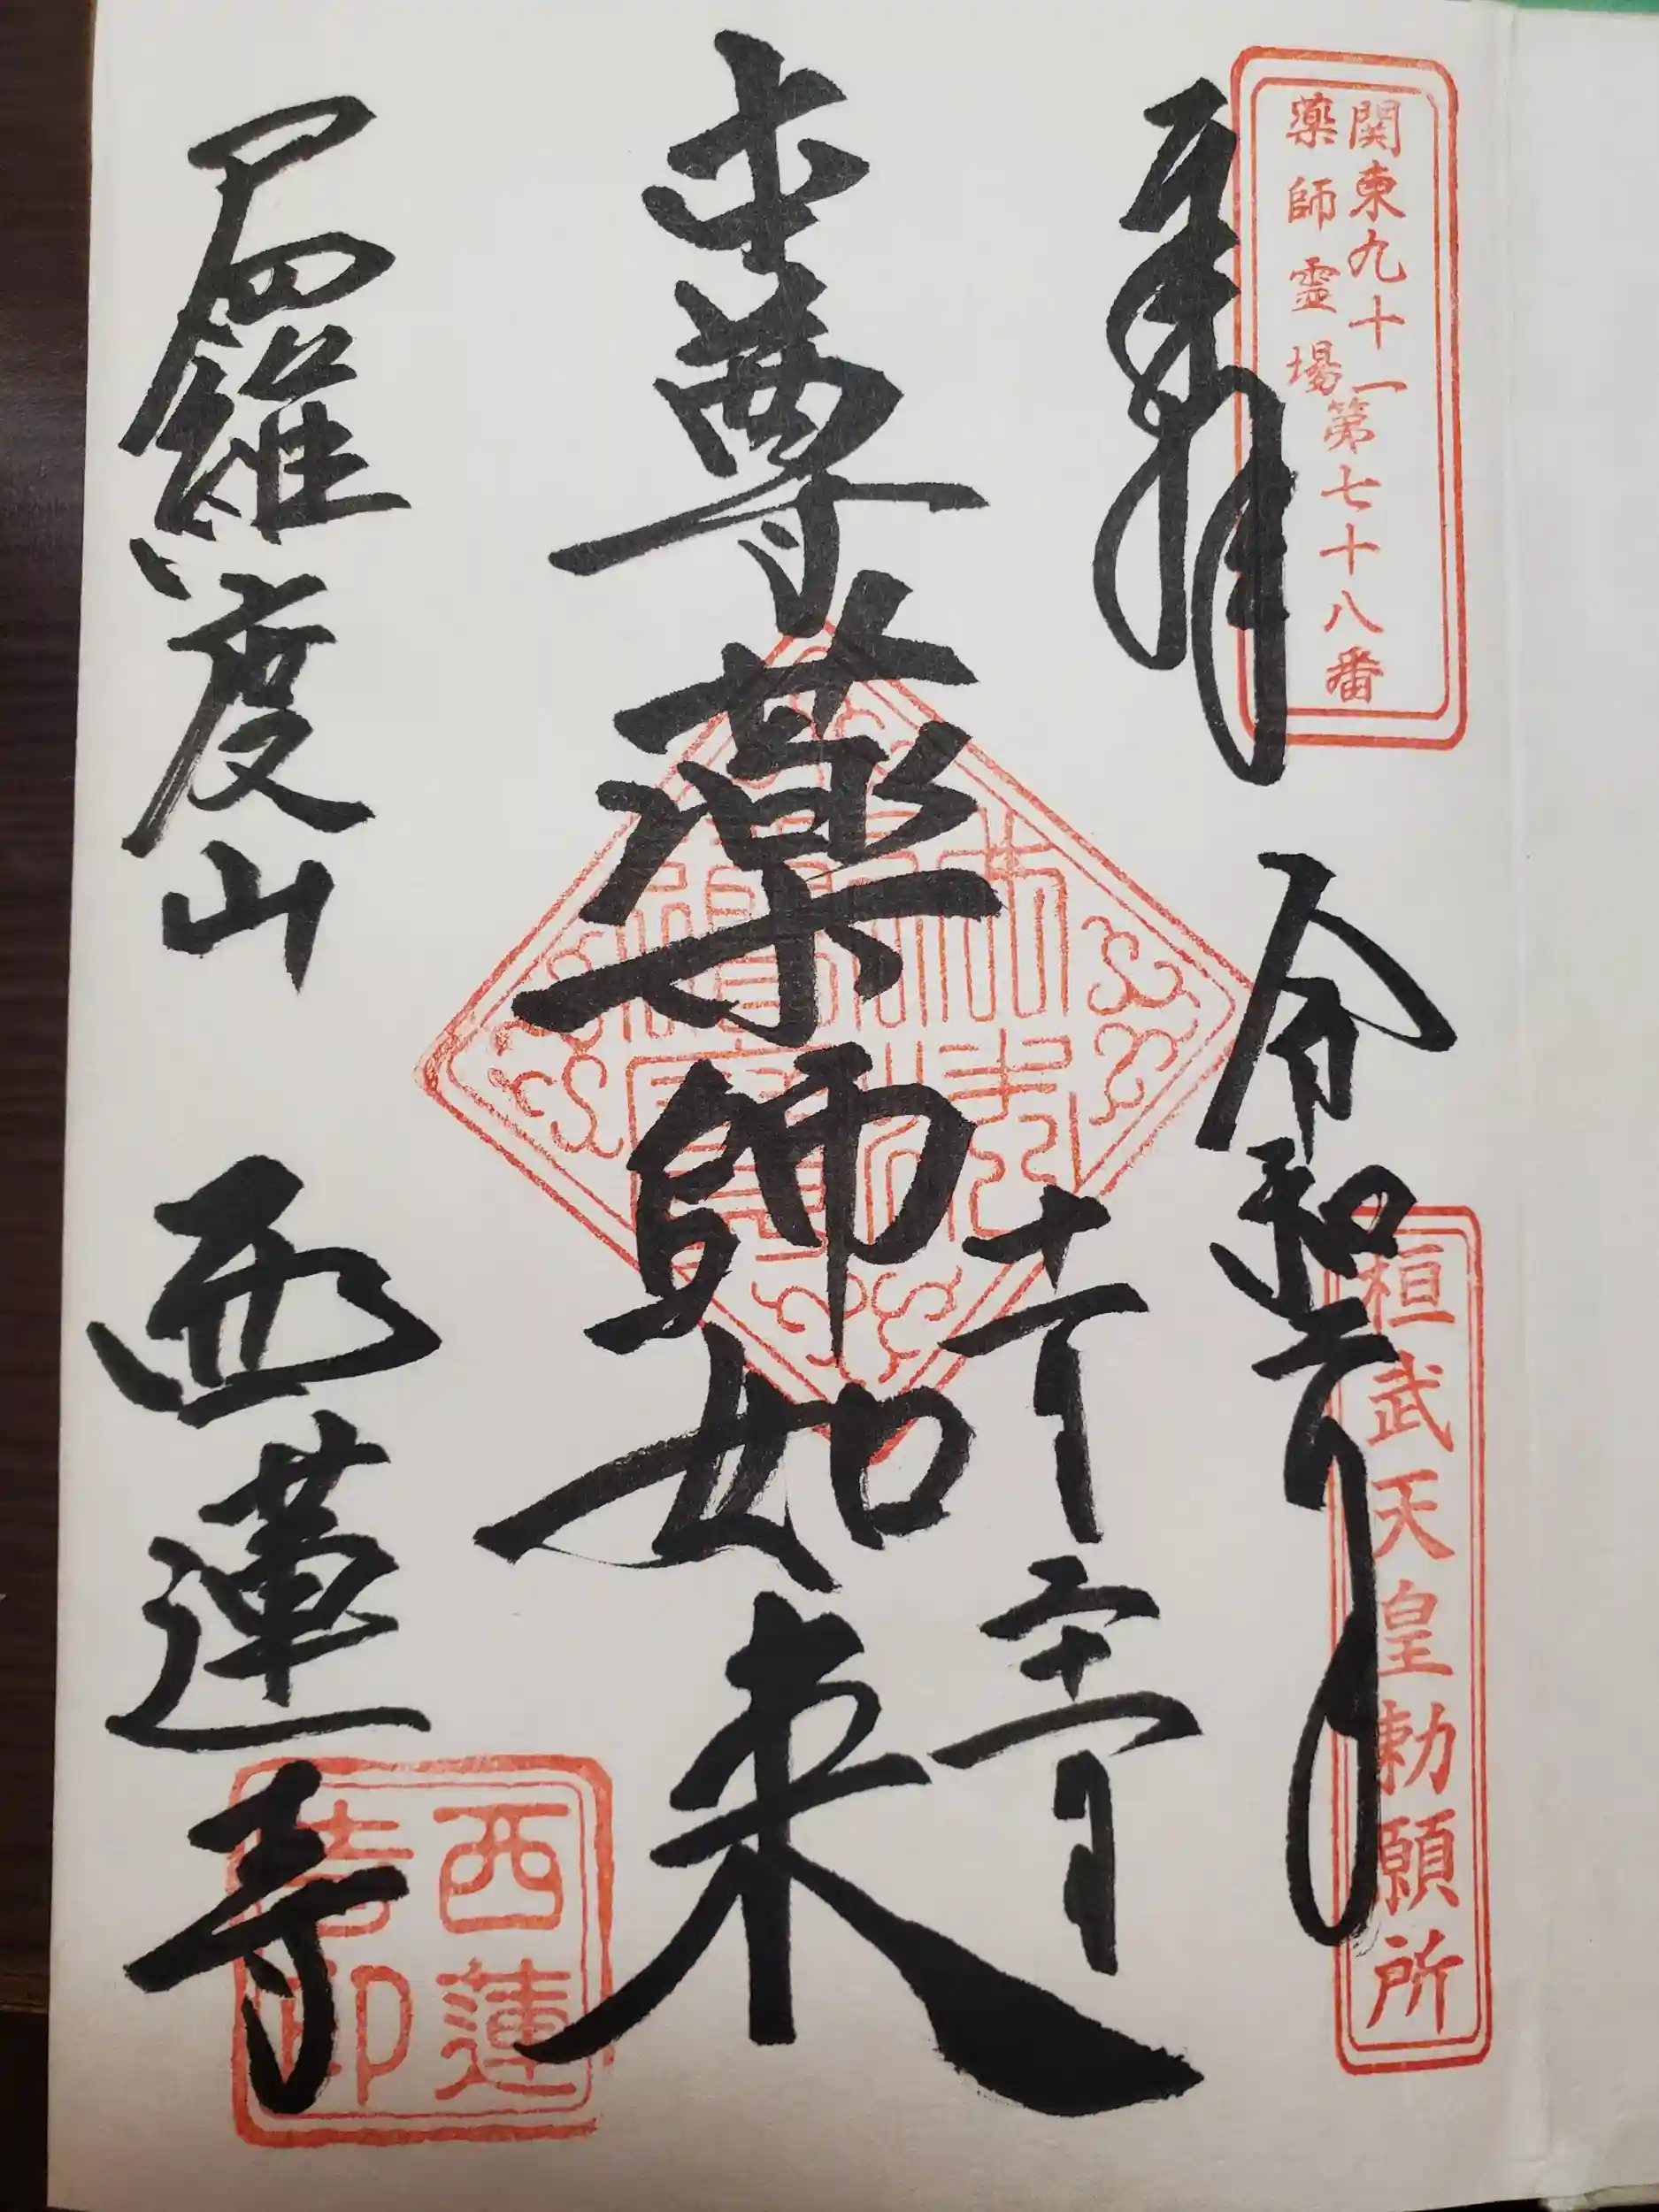 関東九十一
薬師霊場
第七十八番
奉拝
令和六年
十一月
二十一日
桓武天皇勅願所
本尊薬師如来
尸羅度山
西蓮寺
西蓮
寺印